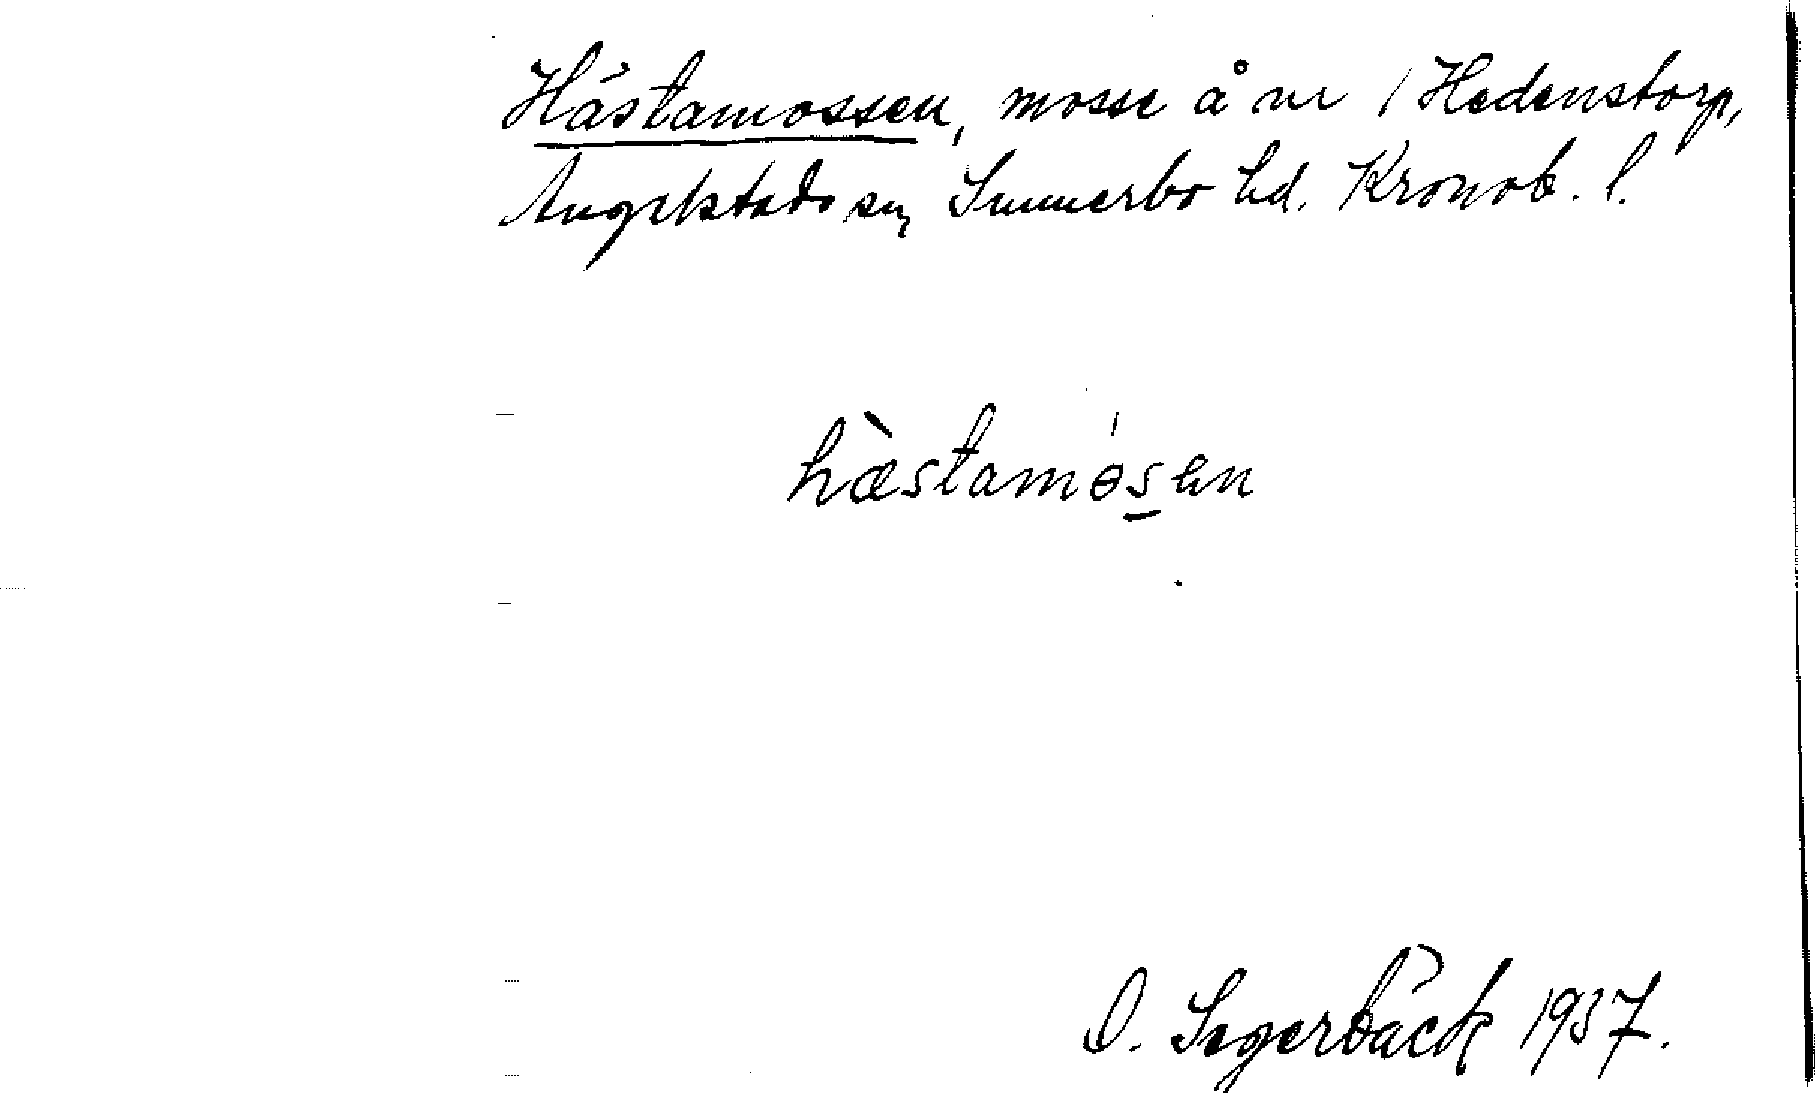 Hästamossen, mosse å nr 1 Hedenstorp,
Angelstads sn, Sunnerbo hd. Kronob. l.
hæ̀stamósen
O. Segerbäck 1937.